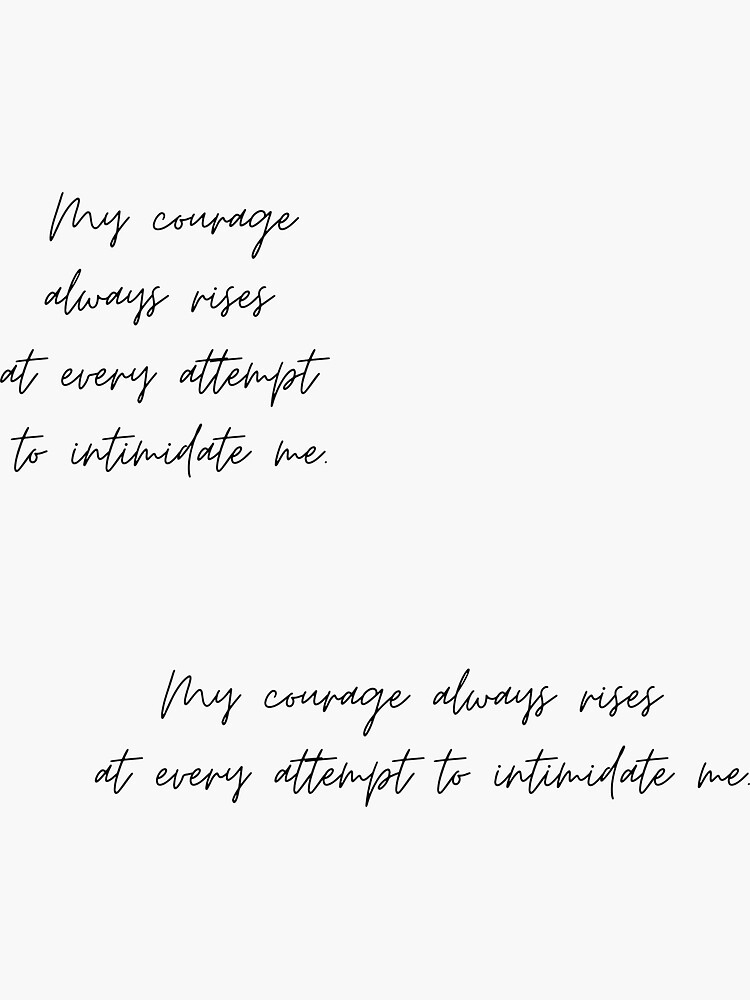 My courage
always rises
at every attempt
to intimidate me.
My courage always rises
at every attempt to intimidate me.